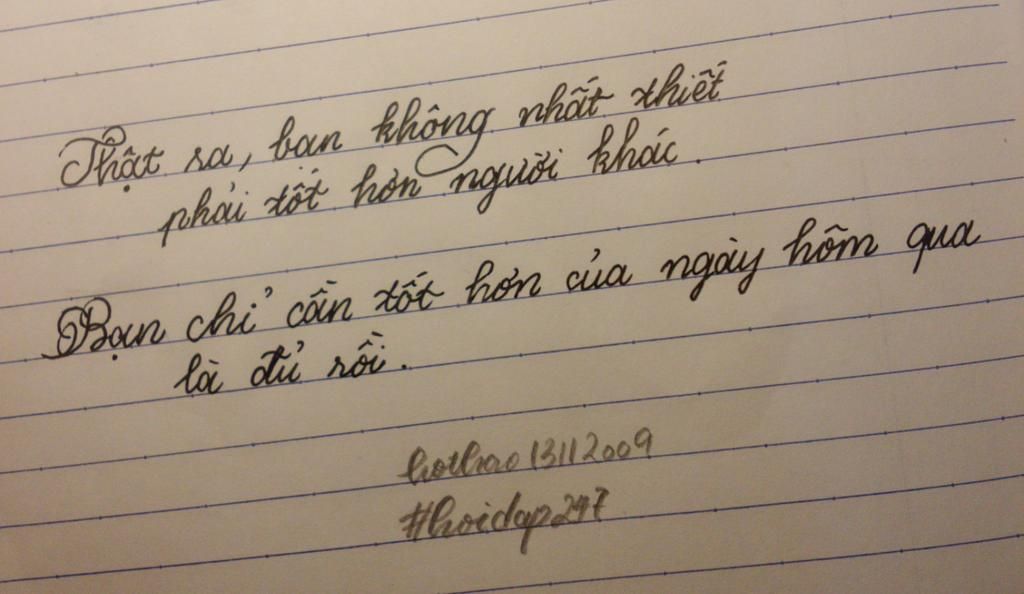 Thật ra, bạn không nhất thiết
phải tốt hơn người khác.
Bạn chỉ cần tốt hơn của ngày hôm qua
là đủ rồi.
hothao13112009
#hoidap247